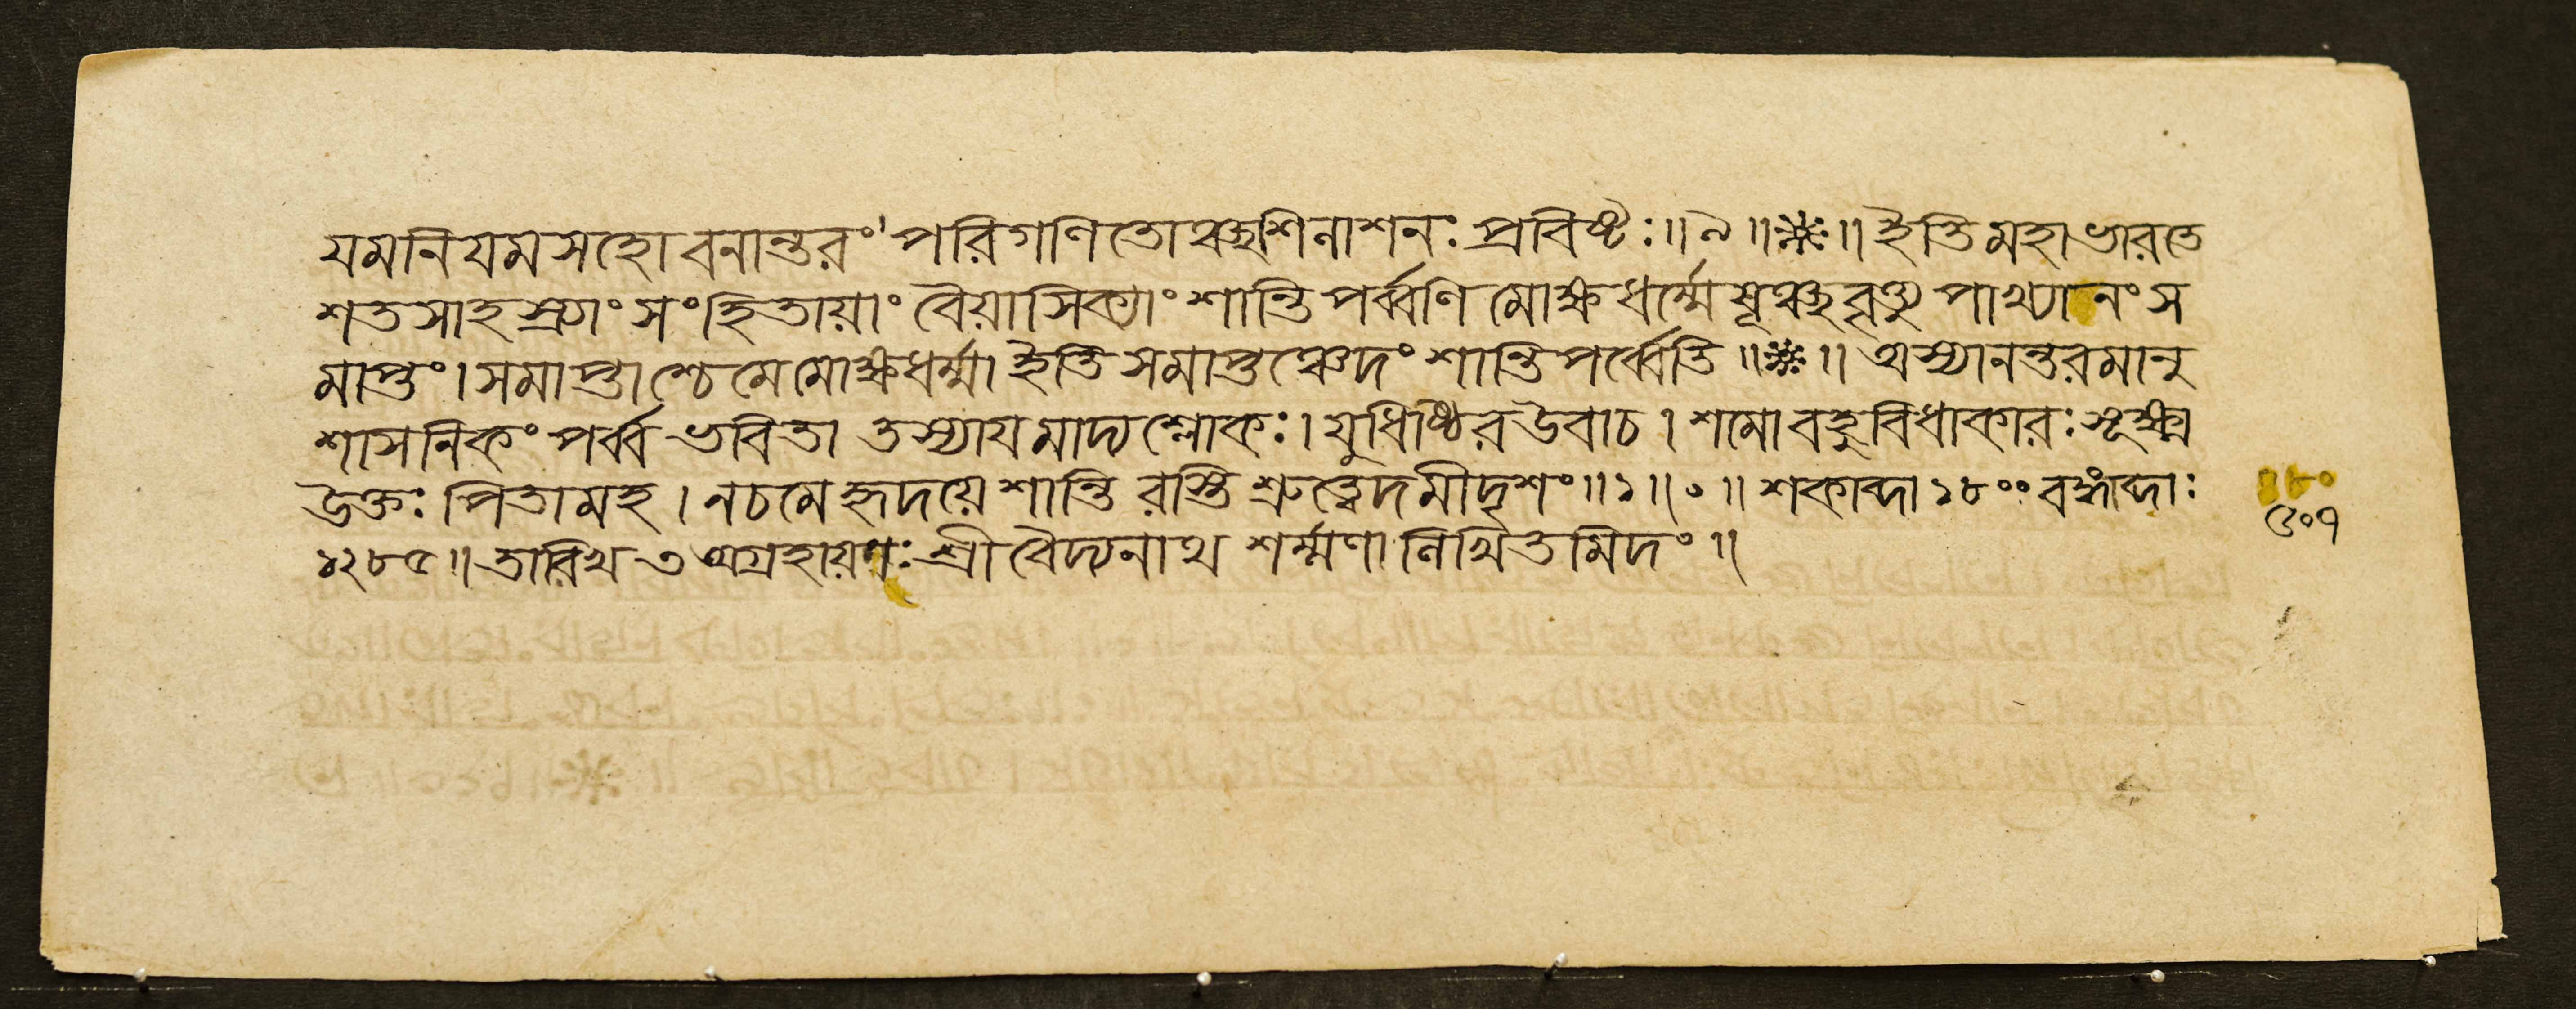 যমনিয়মসহো বনান্তরং পরিগণিতোঞ্ছশিলাশনঃ প্রবিষ্টঃ॥৯॥※॥ ইতি মহাভারতে
শতসাহস্র্যাং সংহিতায়াং বৈয়াসিক্যাং শান্তিপর্ব্বণি মোক্ষধর্ম্মেষূঞ্ছবৃত্ত্যুপাখ্যানং স
মাপ্তং। সমাপ্তাশ্চেমে মোক্ষধর্ম্মা ইতি সমাপ্তঞ্চেদং শান্তিপর্ব্বেতি॥※॥ অস্যানন্তরমানু
শাসনিকং পর্ব্ব ভবিতা তস্যায়মাদ্য শ্লোকঃ। যুধিষ্ঠির উবাচ। শমো বহুবিধাকারঃ সূক্ষ্ম
উক্তঃ পিতামহ। ন চ মে হৃদয়ে শান্তি রস্তি শ্রুত্বেদমীদৃশং॥১॥০॥ শকাব্দা ১৮০০ বঙ্গাব্দাঃ
১২৮৫॥ তারিখ ৩ অগ্রহায়ণঃ শ্রীবৈদ্যনাথ শর্ম্মণা লিখিতমিদং॥
৫০৭